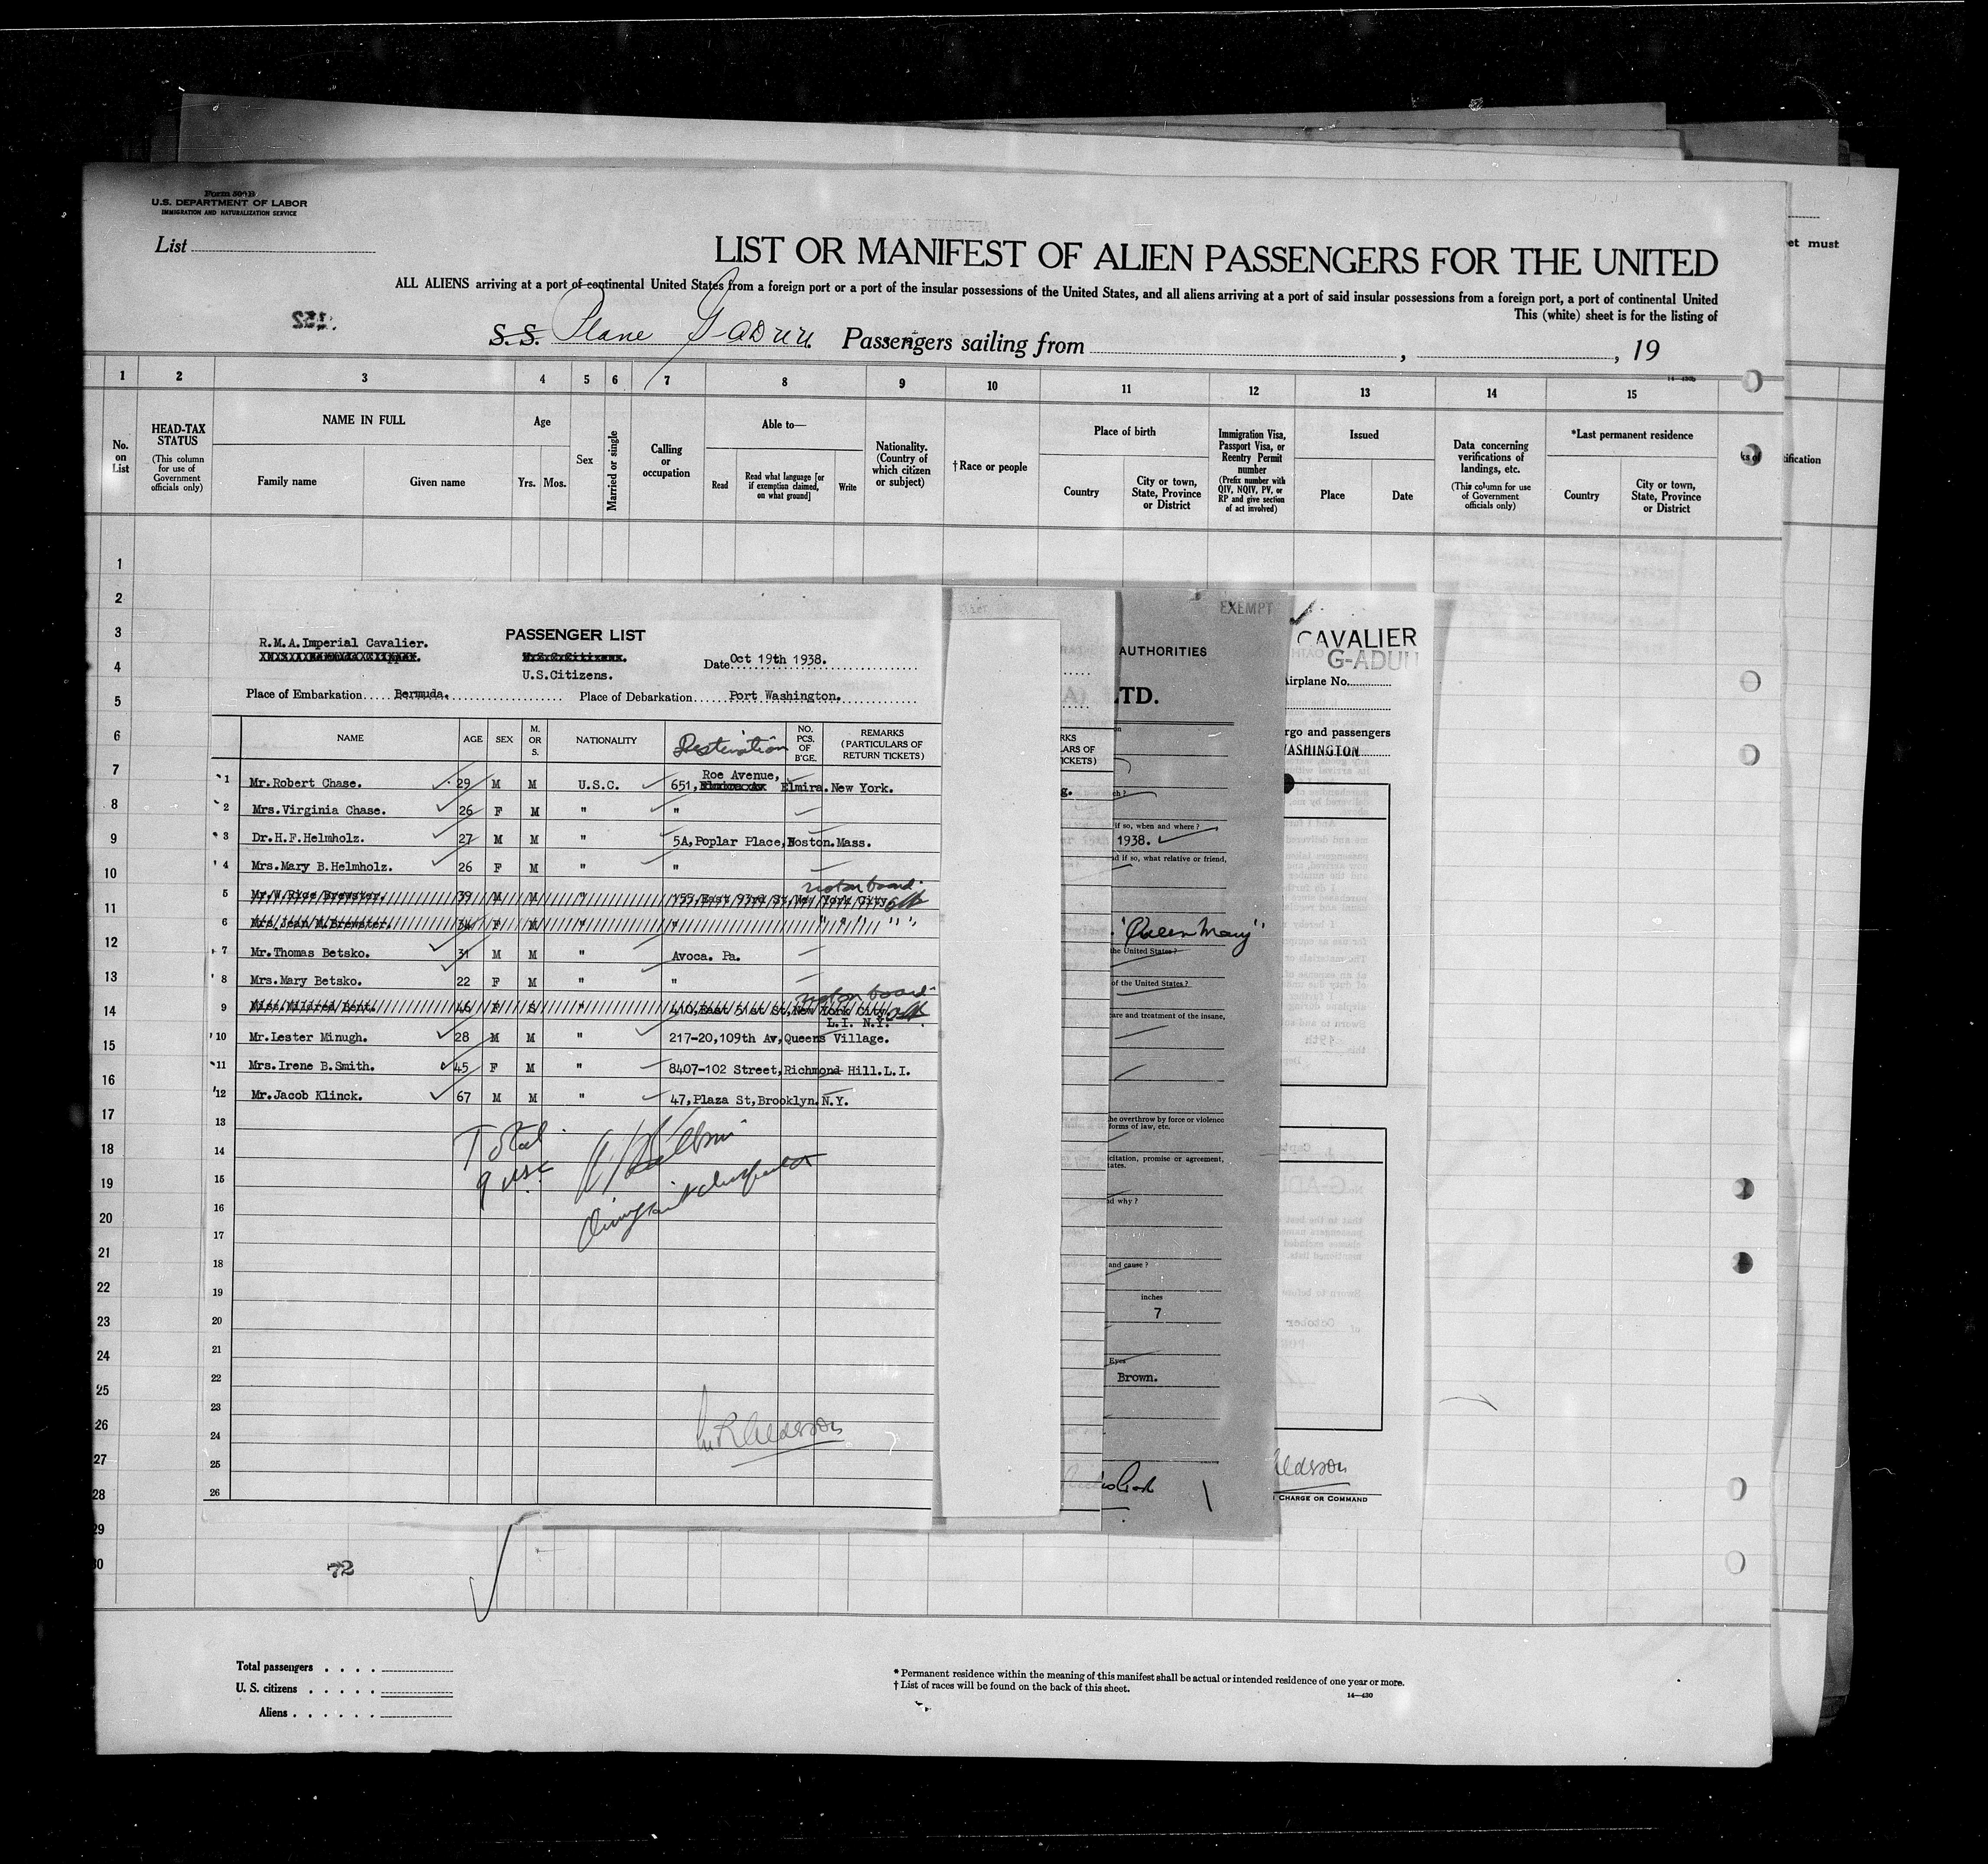 Form 500 B
U.S. DEPARTMENT OF LABOR
IMMIGRATION AND NATURALIZATION SERVICE
List
LIST OR MANIFEST OF ALIEN PASSENGERS FOR THE UNITED
ALL ALIENS arriving at a port of continental United States from a foreign port or a port of the insular possessions of the United States, and all aliens arriving at a port of said insular possessions from a foreign port, a port of continental United
This (white) sheet is for the listing of
S.S. Plane GADUU Passengers sailing from , , 19
et must
1 2 3 4 5 6 7 8 9 10 11 12 13 14 15
14—430b
No. on List
HEAD-TAX STATUS
(This column for use of Government officials only)
NAME IN FULL
Family name Given name
Age
Yrs. Mos.
Sex
Married or single
Calling or occupation
Able to—
Read Read what language [or if exemption claimed, on what ground] Write
Nationality. (Country of which citizen or subject)
†Race or people
Place of birth
Country City or town, State, Province or District
Immigration Visa, Passport Visa, or Reentry Permit number
(Prefix number with QIV, NQIV, PV, or RP and give section of act involved)
Issued
Place Date
Data concerning verifications of landings, etc.
(This column for use of Government officials only)
*Last permanent residence
Country City or town, State, Province or District
ification
1
2
3
4
5
6
7
8
9
10
11
12
13
14
15
16
17
18
19
20
21
22
23
24
25
26
27
28
29
30
PASSENGER LIST
R.M.A.Imperial Cavalier.
U.S.Citizens.
Date Oct 19th 1938.
Place of Embarkation Bermuda. Place of Debarkation Port Washington.
NAME AGE SEX M. OR S. NATIONALITY Destination NO. PCS. OF B'GE. REMARKS (PARTICULARS OF RETURN TICKETS)
Roe Avenue,
1 Mr.Robert Chase. 29 M M U.S.C. 651, Elmira.New York.
2 Mrs.Virginia Chase. 26 F M " "
3 Dr.H.F.Helmholz. 27 M M " 5A,Poplar Place,Boston.Mass.
4 Mrs.Mary B.Helmholz. 26 F M " "
not on board
5 Mr.W.Rice Brewster. 39 M M " 155,East 93rd St,New York City
6 Mrs.Jean M.Brewster. 34 F M " " " " "
7 Mr.Thomas Betsko. 31 M M " Avoca. Pa.
8 Mrs.Mary Betsko. 22 F M " "
not on board
9 Miss.Mildred Bent. 46 F S " 410,East 51st St,New York City
L.I. N.Y.
10 Mr.Lester Minugh. 28 M M " 217-20,109th Av,Queens Village.
11 Mrs.Irene B.Smith. 45 F M " 8407-102 Street,Richmond Hill.L.I.
12 Mr.Jacob Klinck. 67 M M " 47,Plaza St,Brooklyn.N.Y.
13
14
15
16
17
18
19
20
21
22
23
24
25
26
Total
9 USC
72
EXEMPT
AUTHORITIES
LTD.
1938.
if so, when and where?
d if so, what relative or friend,
"Queen Mary"
the United States?
of the United States?
care and treatment of the insane,
he overthrow by force or violence
forms of law, etc.
icitation, promise or agreement,
tates.
d why?
and cause?
inches
7
Eyes
Brown.
CAVALIER
G-ADUU
Airplane No.
rgo and passengers
WASHINGTON
CHARGE OR COMMAND
Total passengers
U. S. citizens
Aliens
* Permanent residence within the meaning of this manifest shall be actual or intended residence of one year or more.
† List of races will be found on the back of this sheet.
14—430